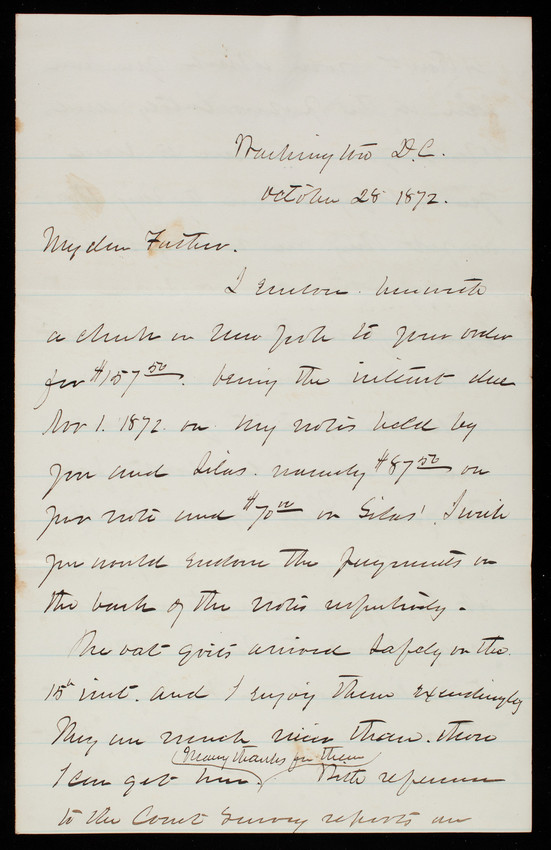 Washington D.C.
October 28 1872.
My dear Father.
I enclose herewith
a check on New York to your order
for $157.50. being the interest due
Nov 1. 1872. on my notes held by
you and Silas. namely $87.50 on
your note and $70.00 on Silas'. I wish
you would endorse the payments on
the back of the notes respectively.
The oat grits arrived safely on the
15th inst. and I enjoy them exceedingly
They are much nicer than those
I can get here (Many thanks for them) With reference
to the Coast Survey reports on